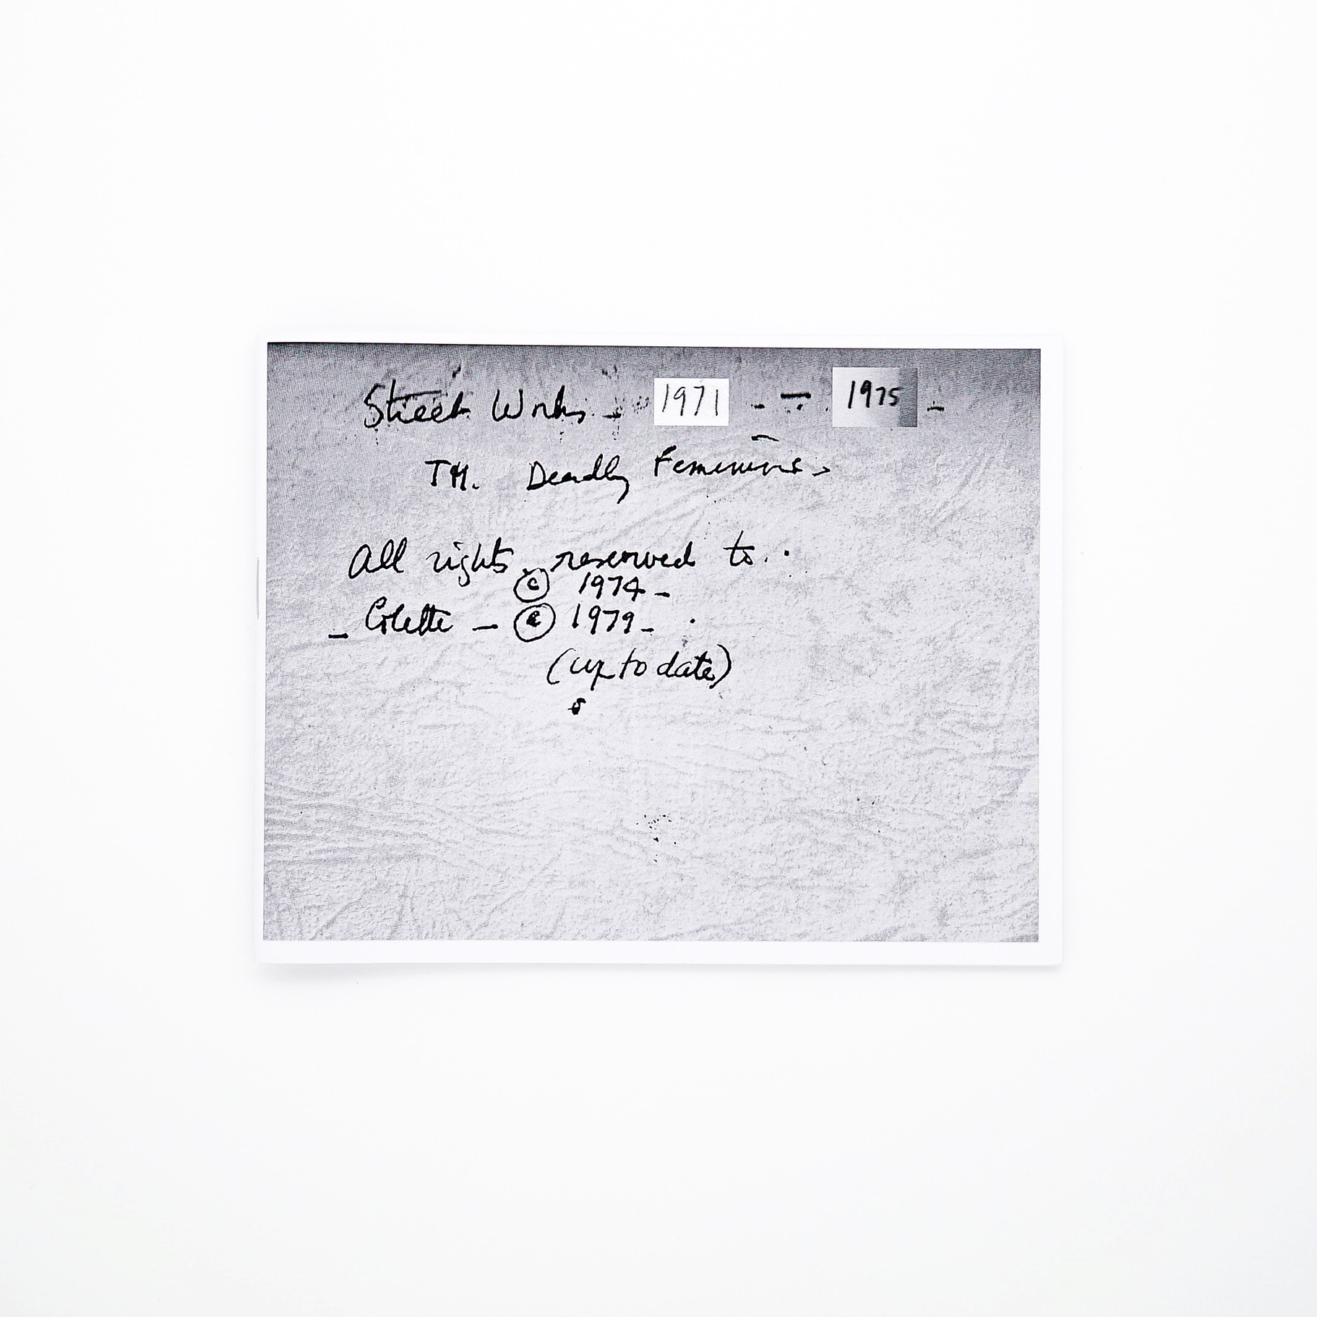 Street Works - 1971 - - 1975 -
TM. Deadly Feminins
All rights reserved to.
© 1974 -
- Colette - © 1979 -
(up to date)